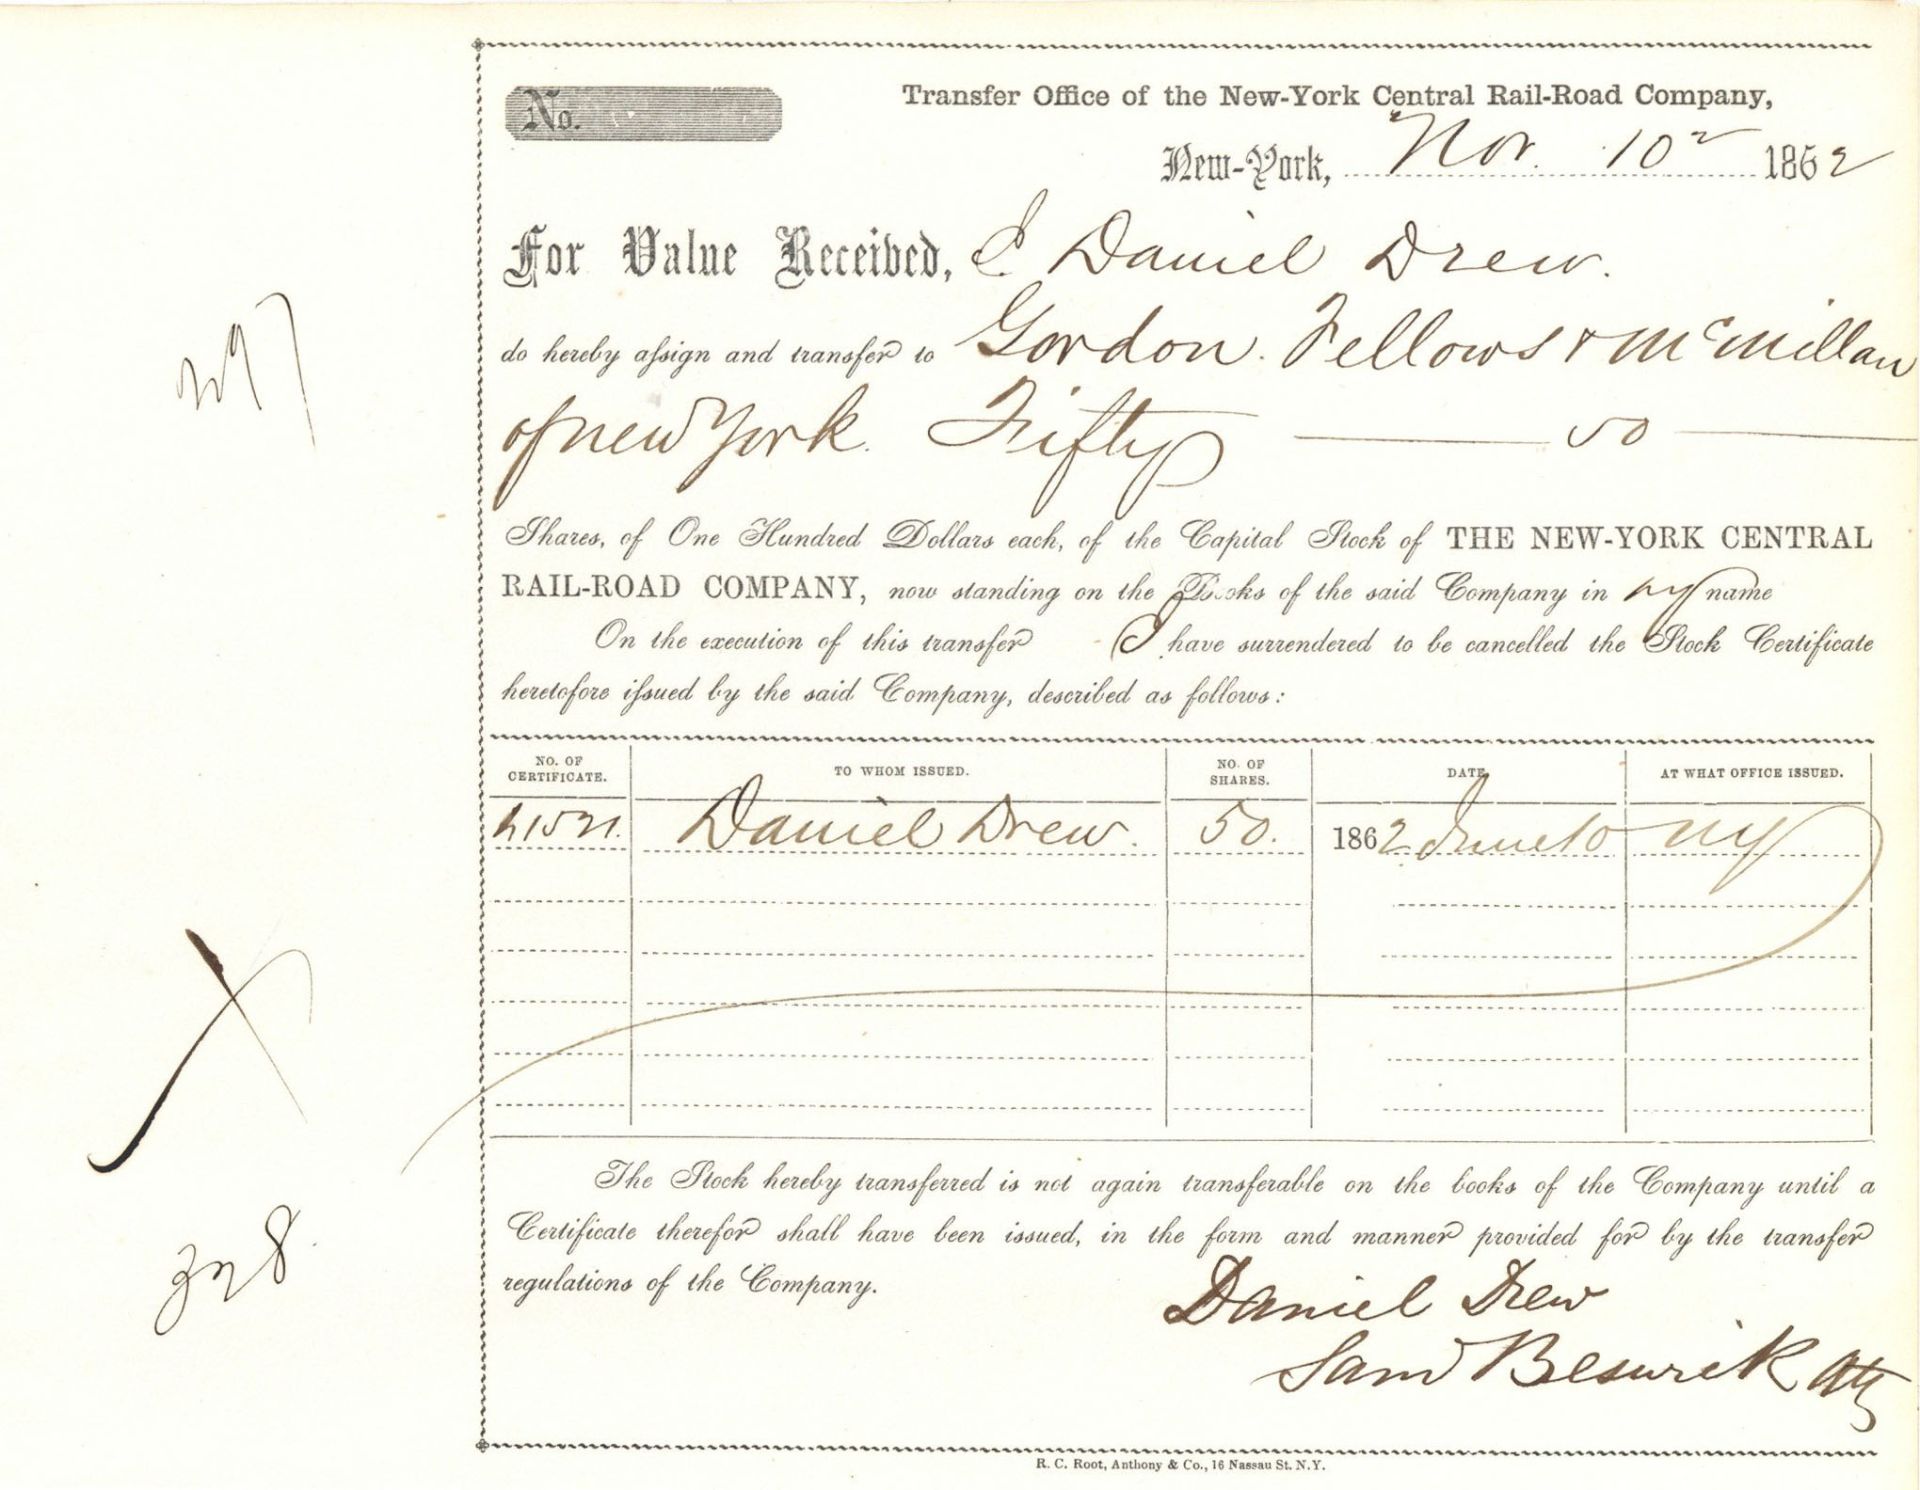 No.
Transfer Office of the New-York Central Rail-Road Company,
New-York, Nov. 10 1862
For Value Received, I Daniel Drew.
do hereby assign and transfer to Gordon. Fellows & McMillan
of New York. Fifty 50
Shares, of One Hundred Dollars each, of the Capital Stock of THE NEW-YORK CENTRAL
RAIL-ROAD COMPANY, now standing on the Books of the said Company in my name
On the execution of this transfer I have surrendered to be cancelled the Stock Certificate
heretofore issued by the said Company, described as follows:
NO. OF CERTIFICATE. TO WHOM ISSUED. NO. OF SHARES. DATE AT WHAT OFFICE ISSUED.
Daniel Drew. 50. 1862 June 10 NY
The Stock hereby transferred is not again transferable on the books of the Company until a
Certificate therefor shall have been issued, in the form and manner provided for by the transfer
regulations of the Company.
Daniel Drew
Beswick Atty
R. C. Root, Anthony & Co., 16 Nassau St. N.Y.
297
328